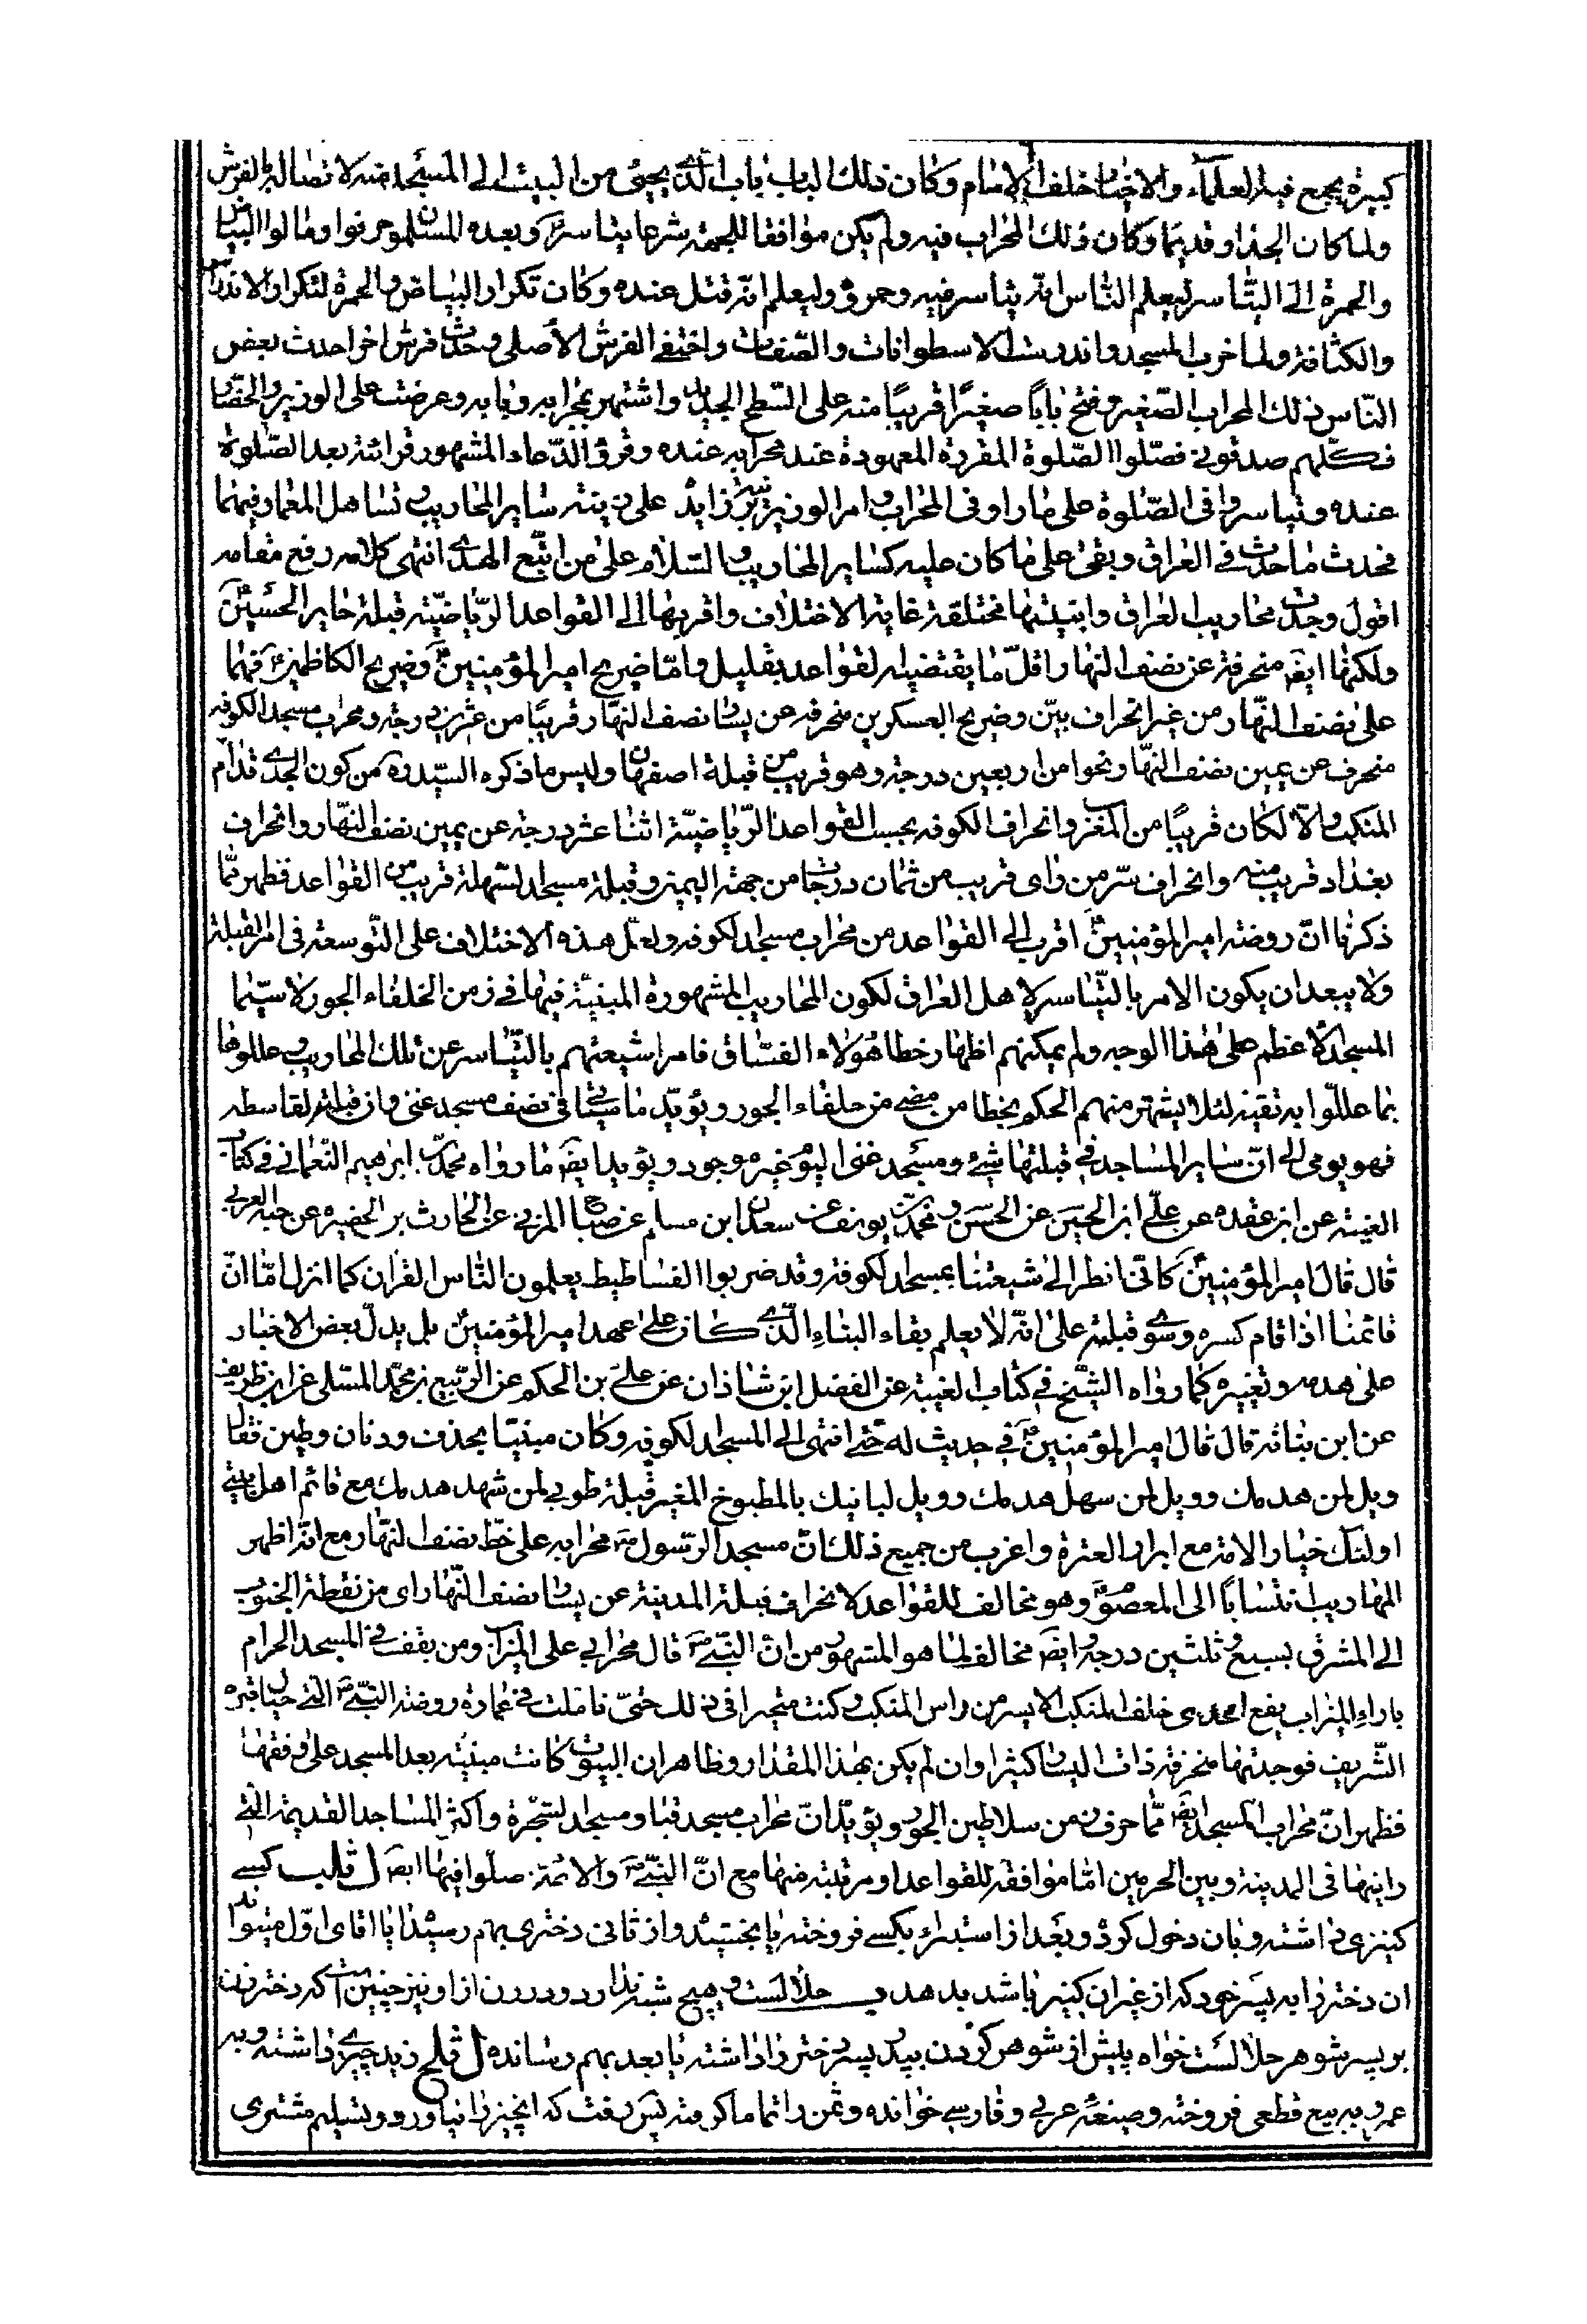 كبيرة يجمع فيه العلماء والاخيار خلف الامام وكان ذلك الباب باب الذي يجيئ من البيت الى المسجد منه لاتصاله بالفرش
ولما كان الجدار قديما وكان ذلك المحراب فيه ولم يكن موافقا للجهة شرعا يتاسر و بعده المسلمون حرفوا ومالوا البياض
والحمرة الى التياسر ليعلم الناس انه يتاسر فيه وحمروه وليعلم انه قتل عنده وكان تكرار البياض والحمرة لتكرار الاندراس
والكثافة ولما خرب المسجد واندرست الاسطوانات والصفات واختفى الفرش الأصلي وحدث فرش اخر احدث بعض
الناس ذلك المحراب الصغير وفتح بابا صغيرا قريبا منه على السطح الجديد واشتهر بمحرابه وبابه وعرضت على الوزير والحضار
فكلهم صدقوني فصلوا الصلوة المقررة المعهودة عند محرابه عنده وقرؤا الدعاء المشهور قرائته بعد الصلوة
عنده وتياسروا فى الصلوة على ما راوا فى المحراب وامر الوزير بزينة زايد على زينته ساير المحاريب وتساهل المعمار فيهما
فحدث ما حدث فى العراق وبقى على ما كان عليه كساير المحاريب والسلام على من اتبع الهدى انتهى كلامه رفع مقامه
اقول وجدت محاريب العراق وابنيتها مختلفة غاية الاختلاف واقربها الى القواعد الرياضية قبلة حاير الحسين
ولكنها ايض منحرفة عن نصف النهار اقل مما يقتضيه القواعد بقليل واما ضريح امير المؤمنين وضريح الكاظمين فهما
على نصف النهار من غير انحراف بين وضريح العسكريين منحرفه عن يسار نصف النهار قريبا من عشرين درجة ومحراب مسجد الكوفه
منحرف عن يمين نصف النهار ونحوا من اربعين درجة وهو قريب من قبلة اصفهان وليس ما ذكره السيد ره من كون الجدى قدام
المنكب والا لكان قريبا من المغرب وانحراف الكوفه بحسب القواعد الرياضية اثنا عشر درجة عن يمين نصف النهار وانحراف
بغداد قريب منه وانحراف سر من راى قريب من ثمان درجات من جهة اليمين وقبلة مسجد السهلة قريب من القواعد فظهر مما
ذكرنا ان روضة امير المؤمنين اقرب الى القواعد من محراب مسجد الكوفه ولعل هذه الاختلاف على التوسعة فى امر القبلة
ولا يبعد ان يكون الامر بالتياسر لاهل العراق لكون المحاريب المشهورة المبنية فيها فى زمن الخلفاء الجور لا سيما
المسجد الاعظم على هذا الوجه ولم يمكنهم اظهار خطا هؤلاء الفساق فامرا شيعتهم بالتياسر عن تلك المحاريب وعللوها
بما عللوا به تقية لئلا يشتهر منهم الحكم بخطا من مضى من خلفاء الجور ويؤيد ما سيئاتى فى نصف مسجد غنى وان قبلته لقاسطه
فهو يومى الى ان ساير المساجد فى قبلتها شئ ومسجد غنى اليوم غير موجود ويؤيد ايض ما رواه محمد بن ابرهيم النعمانى فى كتاب
الغيبة عن ابن عقده عن على ابن الحسين عن الحسن ومحمد بن يوسف عن سعدان ابن مسلم عن صباح المزنى عن الحارث بن الحضيره عن حبه العرنى
قال قال امير المؤمنين كانى انظر الى شيعتنا بمسجد الكوفة وقد ضربوا الفساطيط يعلمون الناس القران كما انزل اما ان
قائمنا اذا قام كسره وسوى قبلته على انه لا يعلم بقاء البناء الذى كان على عهد امير المؤمنين بل يدل بعض الاخبار
على هدمه وتغييره كما رواه الشيخ فى كتاب الغيبة عن الفضل ابن شاذان عن على بن الحكم عن الربيع بن محمد المسلى عن ابن ظريف
عن ابن نباته قال قال امير المؤمنين فى حديث له حتى انتهى الى المسجد الكوفه وكان مبنيا بخذف ودنان وطين فقال
ويل لمن هدمك وويل لمن سهل هدمك وويل لبانيك بالمطبوخ المغير قبلة طوبى لمن شهد هدمك مع قائم اهل بيتى
اولئك خيار الامة مع ابرار العترة واغرب من جميع ذلك ان مسجد الرسول ص محرابه على خط نصف النهار مع انه اظهر
المهاريب انتسابا الى المعصوم وهو مخالف للقواعد لانحراف قبلة المدينة عن يسار نصف النهار اى من نقطة الجنوب
الى المشرق بسبع وثلثين درجة وايض مخالف لما هو المشهور من ان النبى ص قال محرابى على الميزاب ومن يقف فى المسجد الحرام
باراء الميزاب يقع الجدى خلف المنكب الايسر من راس المنكب وكنت متحيرا فى ذلك حتى تاملت فى عمارة روضة النبى ص التى حيال قبره
الشريف فوجدتها منحرفة ذات اليسار كثيرا وان لم يكن بهذا المقدار وظاهر ان البيوت كانت مبنيته بعد المسجد على وفقها
فظهر ان محراب المسجد ايض مما حرف زمن سلاطين الجور ويؤيد ان محراب مسجد قبا ومسجد الشجرة واكثر المساجد القديمة التى
رايتها فى المدينة وبين الحرمين اما موافقة للقواعد او مرتبة منها مع ان النبى ص والائمة صلوا فيها ايض ل قلب كسى
كنيزى داشته وبان دخول كرد وبعد از استبراء بكسى فروخته يا بخشيد واز ثانى دخترى بهم رسيد ايا اقاى اول ميتواند
ان دختر را به پسر خود كه از غير ان كنيز باشد بدهد ج حلالست وهيچ شبه ندارد ودر زن ازاد نيز چنين است كه دختر زن
بر پسر شوهر حلالست خواه پيش از شوهر كردن بپدر پسر دختر را داشته يا بعد بهم رسانده ل قلح زيد چيزى داشته وبه
عمرو به بيع قطعى فروخته وصيغهٔ عربى وفارسى خوانده وثمن را تماما گرفته پس رفت كه انچيز را نياورد وبتسليم مشترى